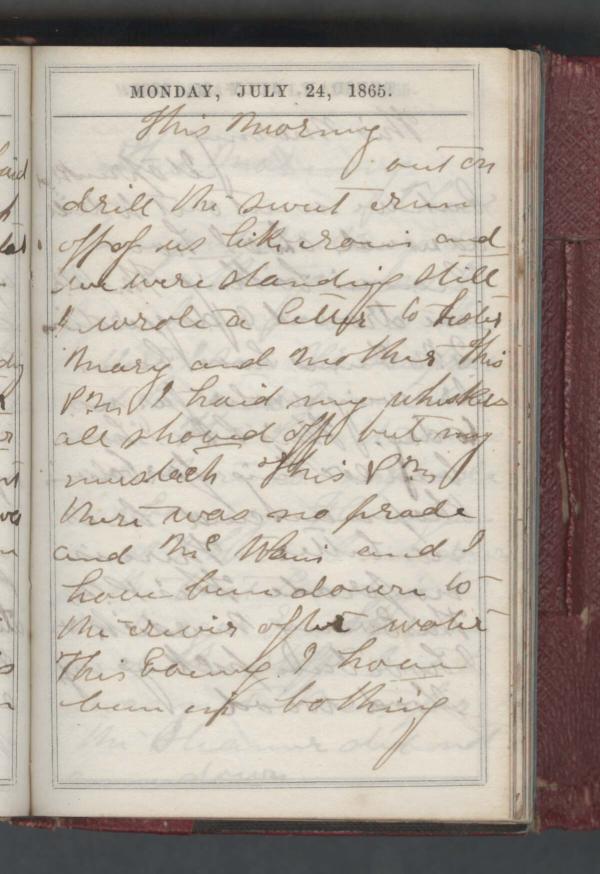 MONDAY, JULY 24, 1865.
This Morning
out on
drill the swet run
off of us like rain and
we were standing still
I wrote a letter to Sister
Mary and Mother This
P.M. I haid my whisker
all shaved off but my
mustach This P.M.
there was no prade
and Mc and I
have bin down to
the river after water
This Evening I have
bin in bathing